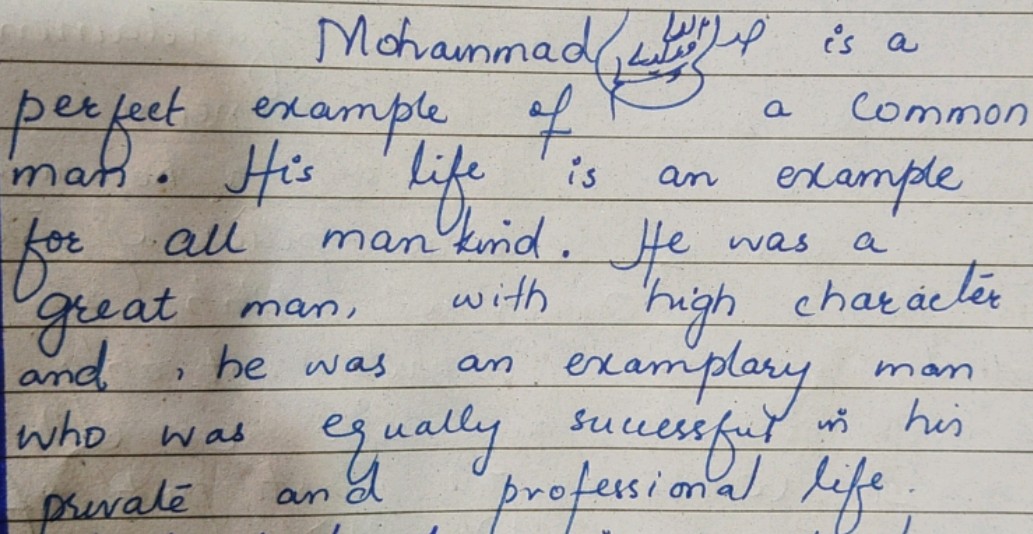 Mohammad (صلى الله عليه وسلم) is a
perfect example of a common
man. His life is an example
for all mankind. He was a
great man, with high character
and, he was an examplary man
who was equally successful in his
private and professional life.